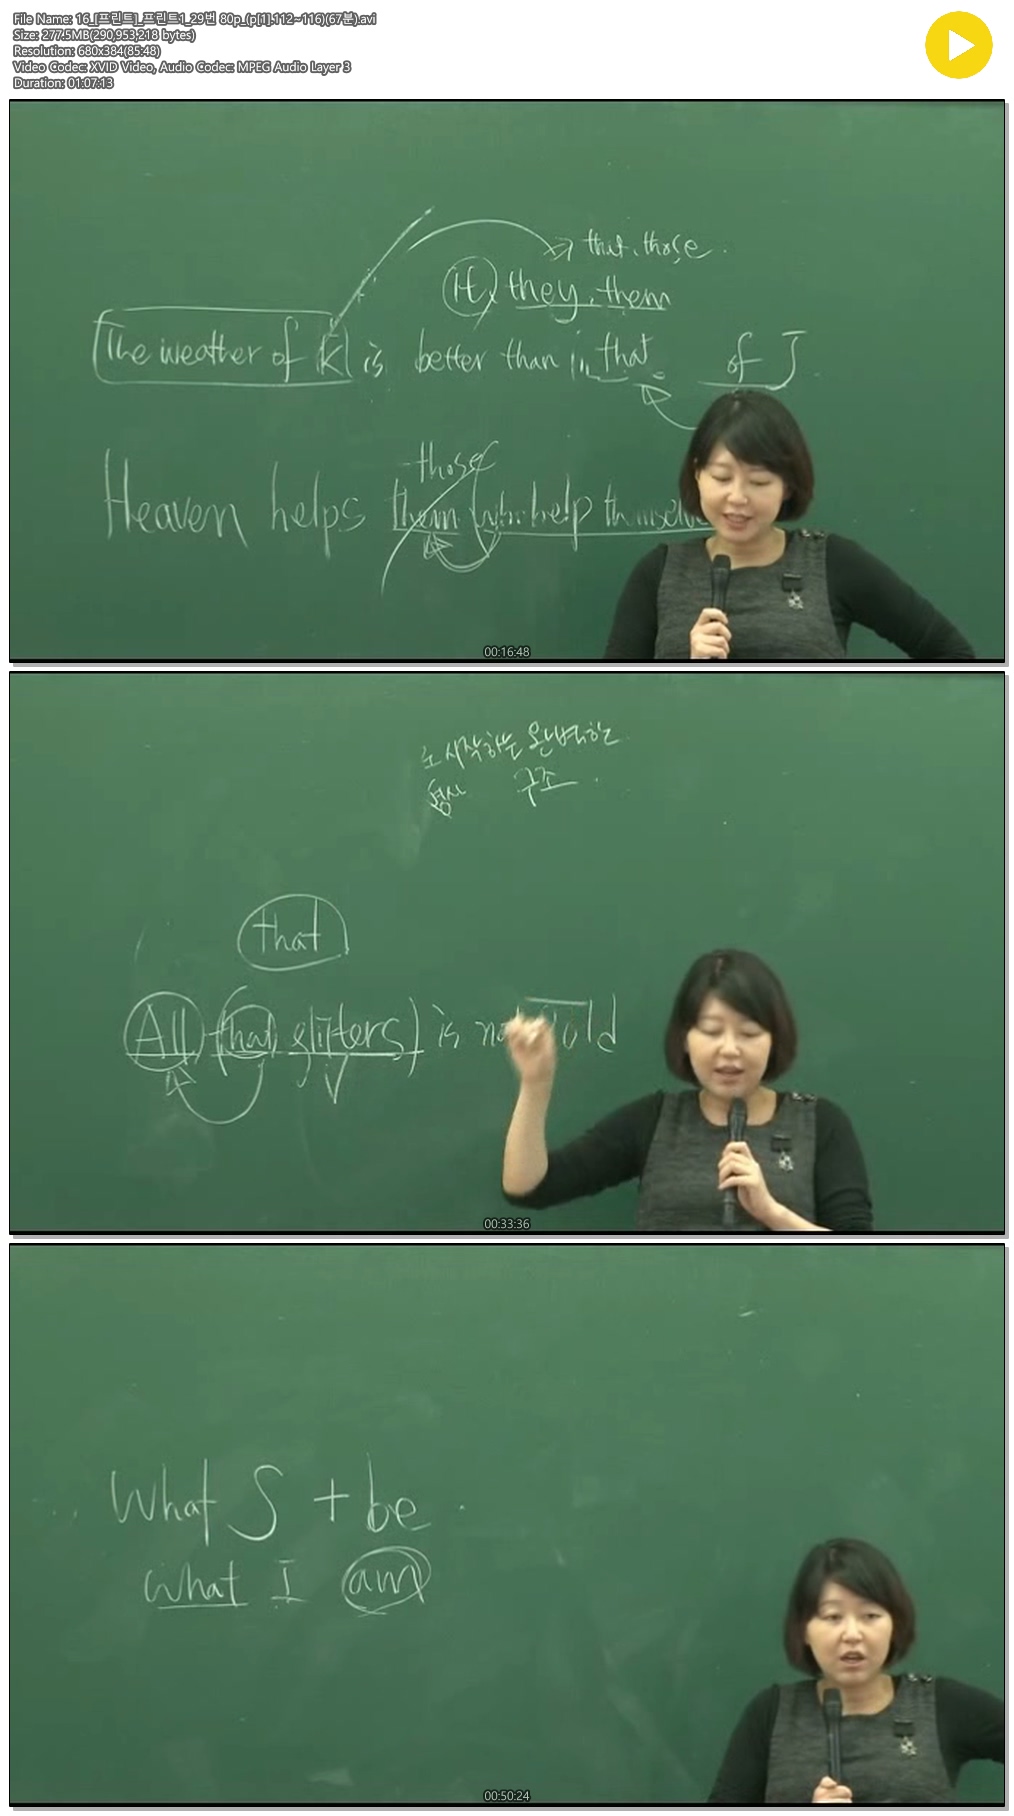 File Name: 16_[프린트]_프린트1_29번 80p_(p[1].112~116)(67분).avi
Size: 277.5MB(290,953,218 bytes)
Resolution: 680x384(85:48)
Video Codec: XVID Video, Audio Codec: MPEG Audio Layer 3
Duration: 01:07:13
that, those
It, they, them
The weather of K is better than in that of J
those
Heaven helps them who help themselve
00:16:48
로 시작하는 완벽한
형식 구조
that
All that glitters) is not gold
00:33:36
What S + be
what I am
00:50:24